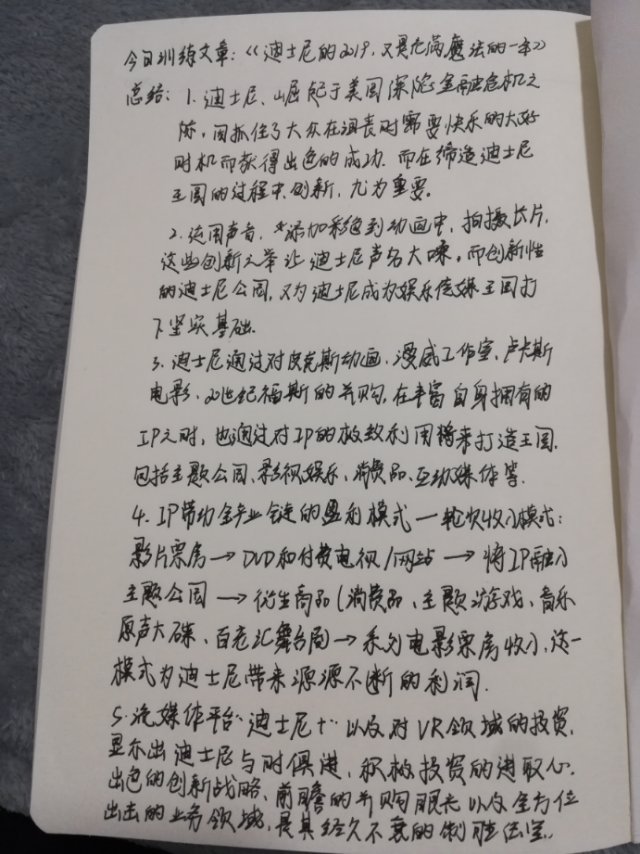 今日训练文章：《迪士尼的2019，又是充满魔法的一年》
总结：1. 迪士尼、崛起于美国深陷金融危机之
际，因抓住了大众在沮丧时需要快乐的大好
时机而获得出色的成功。而在缔造迪士尼
王国的过程中，创新，尤为重要。
2. 运用声音，添加彩色到动画中，拍摄长片，
这些创新之举让迪士尼声名大噪，而创新性
的迪士尼公园，又为迪士尼成为娱乐传媒王国打
下坚实基础.
3. 迪士尼通过对皮克斯动画、漫威工作室、卢卡斯
电影、20世纪福斯的并购，在丰富自身拥有的
IP之时，也通过对IP的极致利用将来打造王国.
包括主题公园、影视娱乐、消费品、互动媒体等.
4. IP带动全产业链的盈利模式—轮次收入模式：
影片票房→DVD和付费电视/网站→将IP融入
主题公园→衍生商品(消费品、主题游戏、音乐
原声大碟、百老汇舞台剧)→系列电影票房收入，这一
模式为迪士尼带来源源不断的利润.
5. 流媒体平台"迪士尼+"以及对VR领域的投资，
显示出迪士尼与时俱进、积极投资的进取心.
出色的创新战略、前瞻的并购眼光以及全方位
出击的业务领域，是其经久不衰的制胜法宝.